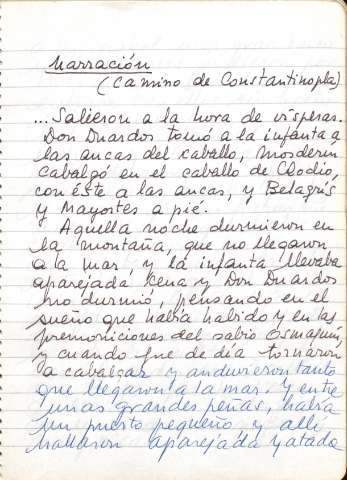 Narración
(Camino de Constantinopla)
... Salieron a la hora de vísperas.
Don Duardos tomó a la infanta a
las ancas del caballo, Mosderin
cabalgó en el caballo de Clodio,
con éste a las ancas, y Belagrús
y Mayortes a pié.
Aquella noche durmieron en
la montaña, que no llegaron
a la mar, y la infanta llevaba
aparejada cena y Don Duardos
no durmió, pensando en el
sueño que había habido y en las
premoniciones del sabio
y cuando fue de día tornaron
a cabalgar y anduvieron tanto
que llegaron a la mar. Y entre
unas grandes peñas, había
un puerto pequeño y allí
hallaron aparejada y atada